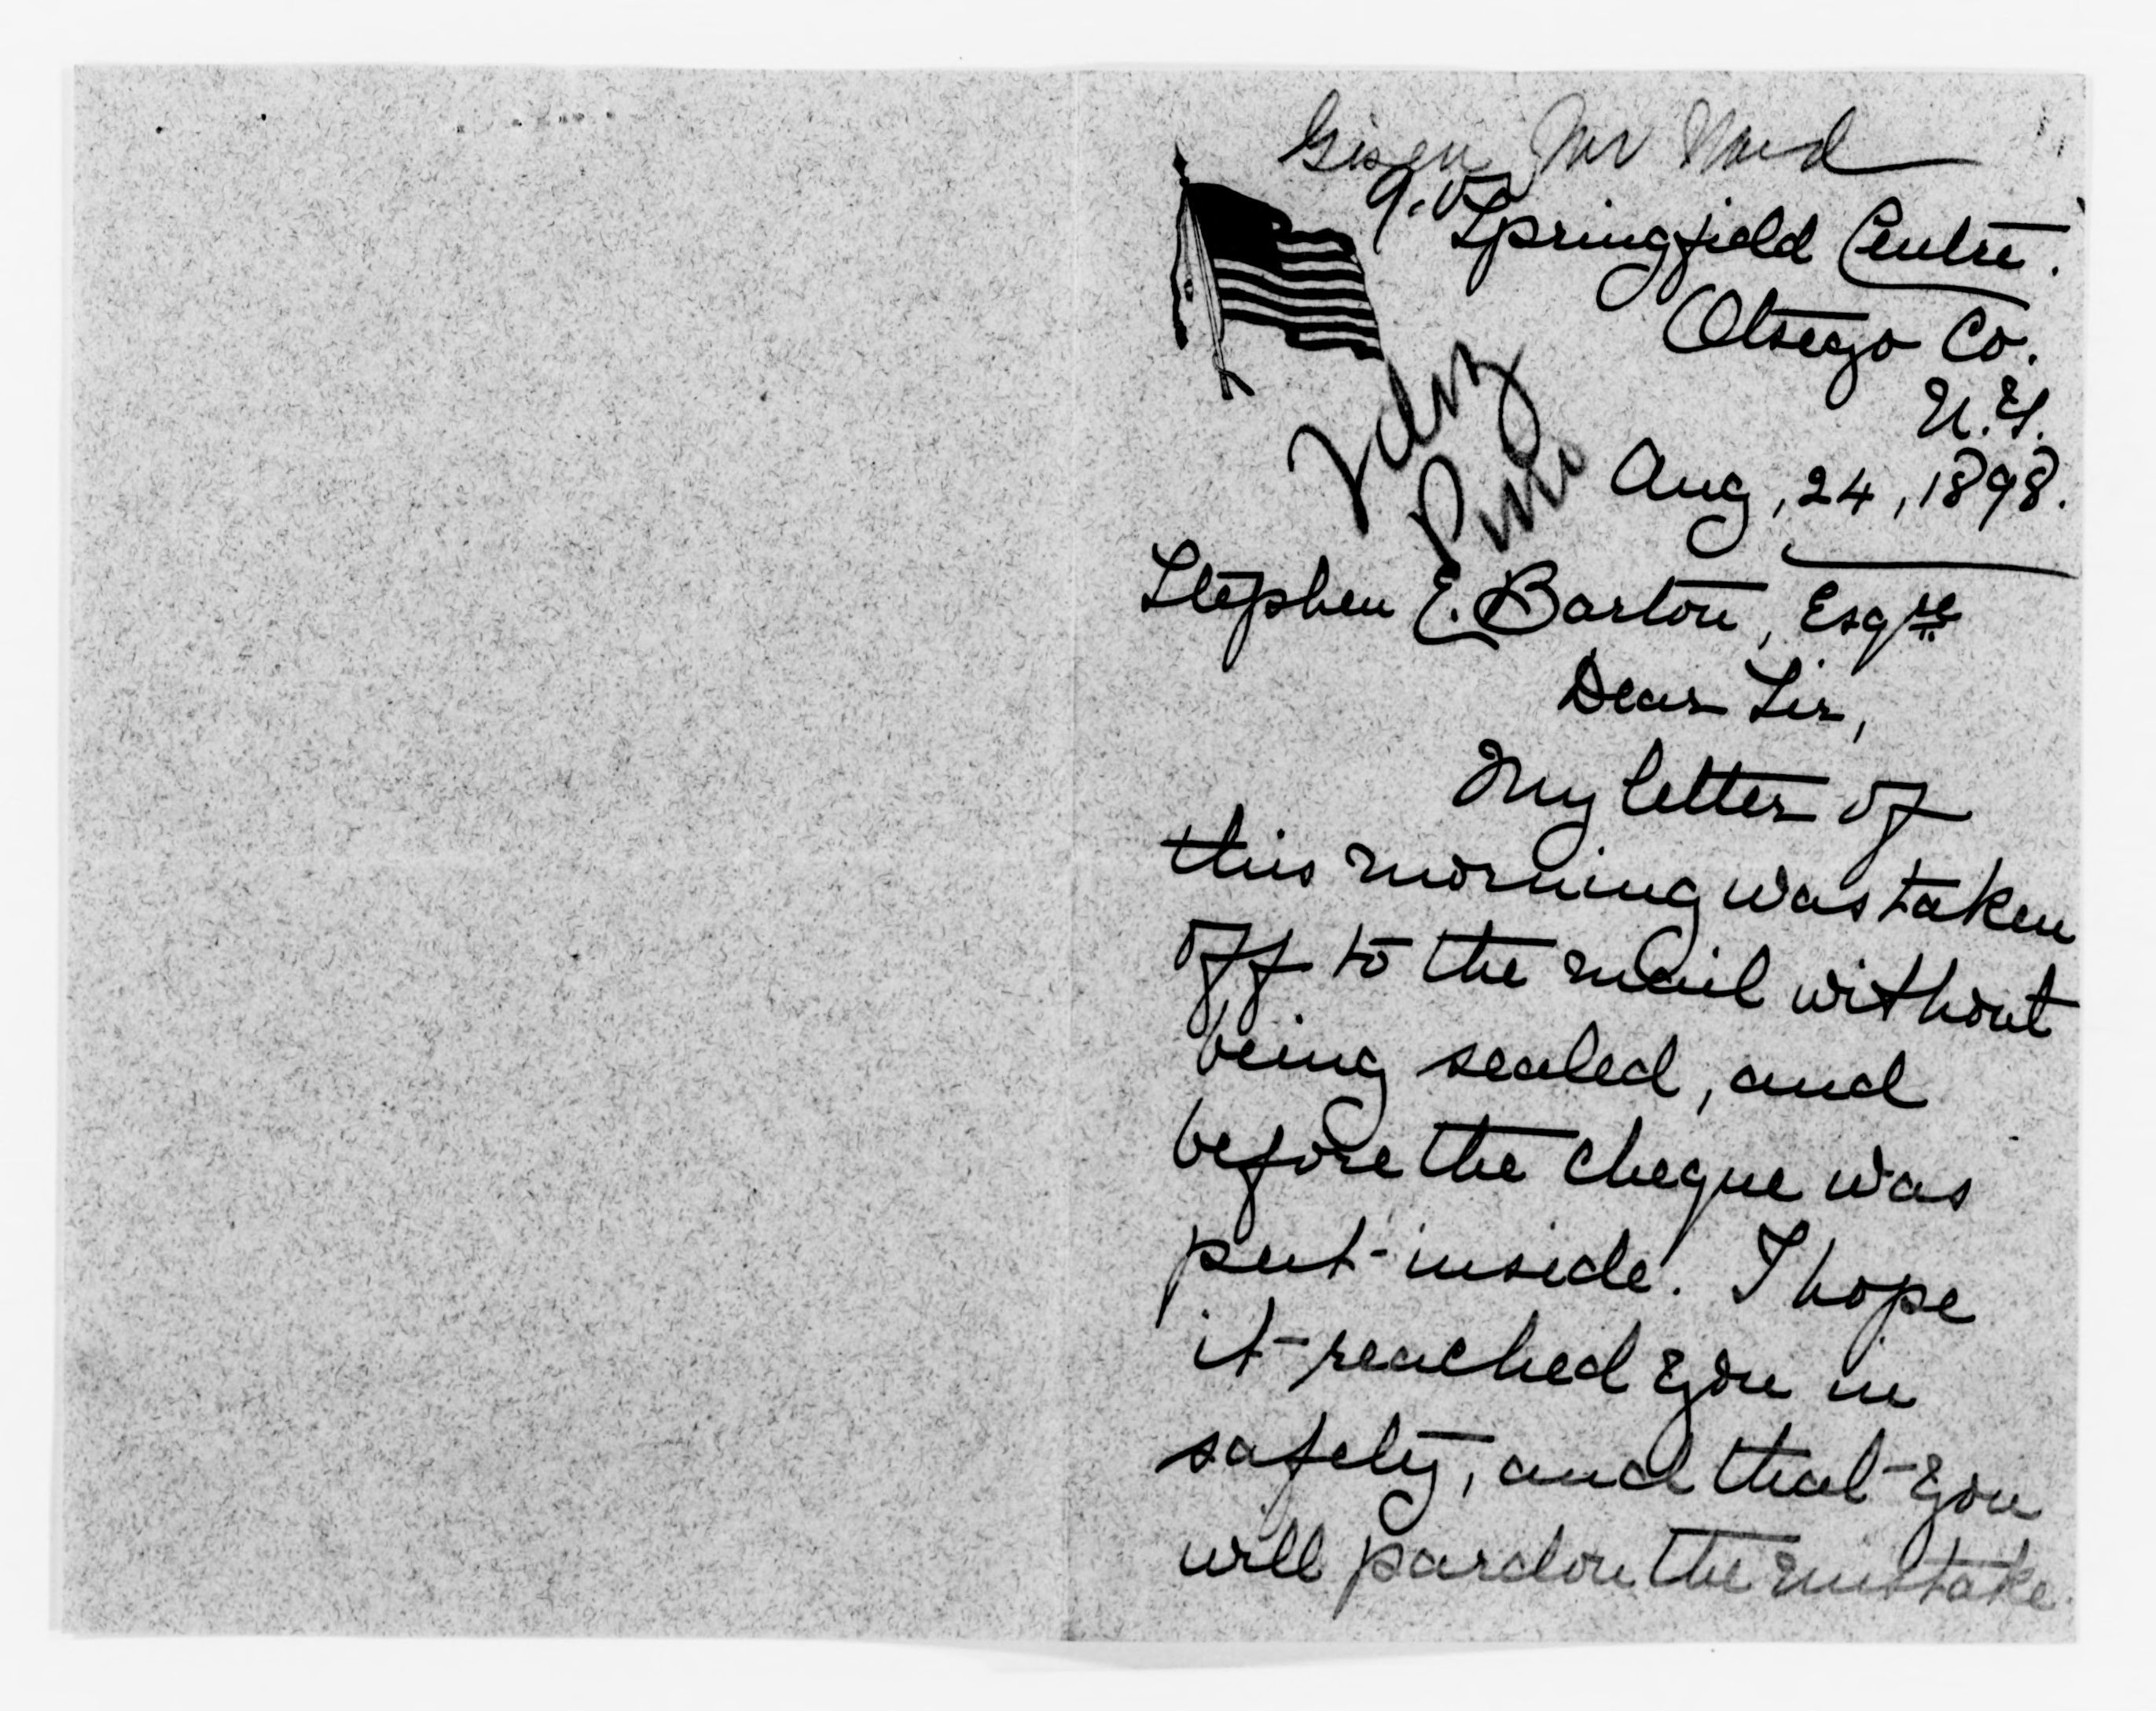 Given Mr Ward
Springfield Centre.
Otsego Co.
N.Y.
Aug, 24, 1898.
Stephen E. Barton, Esqre
Dear Sir,
My letter of
this morning was taken
off to the mail without
being sealed, and
before the cheque was
put inside. I hope
it reached you in
safety, and that you
will pardon the mistake.